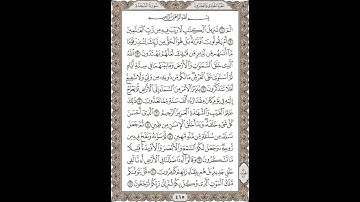 بِسْمِ اللَّهِ الرَّحْمَٰنِ الرَّحِيمِ
الٓمٓ ١ تَنزِيلُ الْكِتَٰبِ لَا رَيْبَ فِيهِ مِن رَّبِّ الْعَٰلَمِينَ ٢
أَمْ يَقُولُونَ افْتَرَىٰهُ بَلْ هُوَ الْحَقُّ مِن رَّبِّكَ لِتُنذِرَ قَوْمًا
مَّآ أَتَىٰهُم مِّن نَّذِيرٍ مِّن قَبْلِكَ لَعَلَّهُمْ يَهْتَدُونَ ٣ اللَّهُ الَّذِي
خَلَقَ السَّمَٰوَٰتِ وَالْأَرْضَ وَمَا بَيْنَهُمَا فِي سِتَّةِ أَيَّامٍ
ثُمَّ اسْتَوَىٰ عَلَى الْعَرْشِ مَا لَكُم مِّن دُونِهِ مِن وَلِيٍّ وَلَا شَفِيعٍ
أَفَلَا تَتَذَكَّرُونَ ٤ يُدَبِّرُ الْأَمْرَ مِنَ السَّمَآءِ إِلَى الْأَرْضِ ثُمَّ يَعْرُجُ
إِلَيْهِ فِي يَوْمٍ كَانَ مِقْدَارُهُ أَلْفَ سَنَةٍ مِّمَّا تَعُدُّونَ ٥ ذَٰلِكَ
عَٰلِمُ الْغَيْبِ وَالشَّهَٰدَةِ الْعَزِيزُ الرَّحِيمُ ٦ الَّذِي أَحْسَنَ
كُلَّ شَيْءٍ خَلَقَهُ وَبَدَأَ خَلْقَ الْإِنسَٰنِ مِن طِينٍ ٧ ثُمَّ جَعَلَ
نَسْلَهُ مِن سُلَٰلَةٍ مِّن مَّآءٍ مَّهِينٍ ٨ ثُمَّ سَوَّىٰهُ وَنَفَخَ فِيهِ مِن
رُّوحِهِ وَجَعَلَ لَكُمُ السَّمْعَ وَالْأَبْصَٰرَ وَالْأَفْـِٔدَةَ قَلِيلًا
مَّا تَشْكُرُونَ ٩ وَقَالُوٓا أَءِذَا ضَلَلْنَا فِي الْأَرْضِ أَءِنَّا لَفِي
خَلْقٍ جَدِيدٍ بَلْ هُم بِلِقَآءِ رَبِّهِمْ كَٰفِرُونَ ١٠ قُلْ يَتَوَفَّىٰكُم
مَّلَكُ الْمَوْتِ الَّذِي وُكِّلَ بِكُمْ ثُمَّ إِلَىٰ رَبِّكُمْ تُرْجَعُونَ ١١
٤١٥